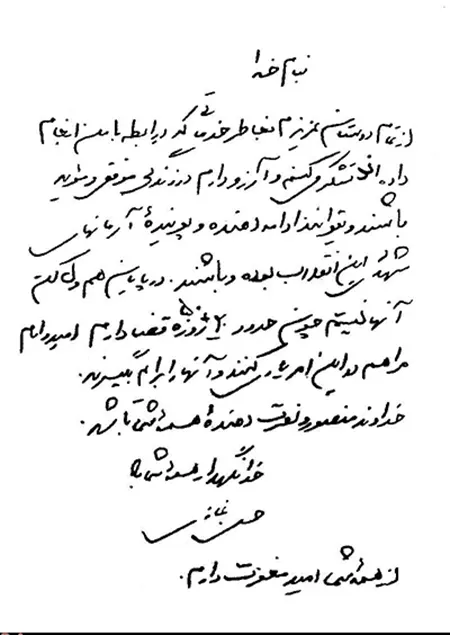 بنام خدا
از تمام دوستان عزیزم بخاطر خدماتی که در رابطه با من انجام
داده‌اند تشکر می‌کنم و آرزو دارم در زندگی موفق و مؤید
باشند و بتوانند ادامه دهنده و پوینده آرمانهای
شهدای این انقلاب بوده و باشند. در پایان هم
آنها نیستم چون حدود روزه قضا دارم امیدوارم
مرا هم در این امر یاری کنند و آنها را برایم بگیرند.
خداوند منصور و نصرت دهندهٔ همه شما باشد.
خدا نگهدار همه شما
حسن
از همه شما امید مغفرت دارم.